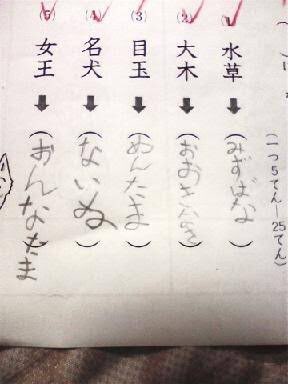 (一つ5てん—25てん)
(1) 水草 ➡ (みずばな)
(2) 大木 ➡ (おおきな き)
(3) 目玉 ➡ (めんたま)
(4) 名犬 ➡ (ないぬ)
(5) 女王 ➡ (おんなたま)